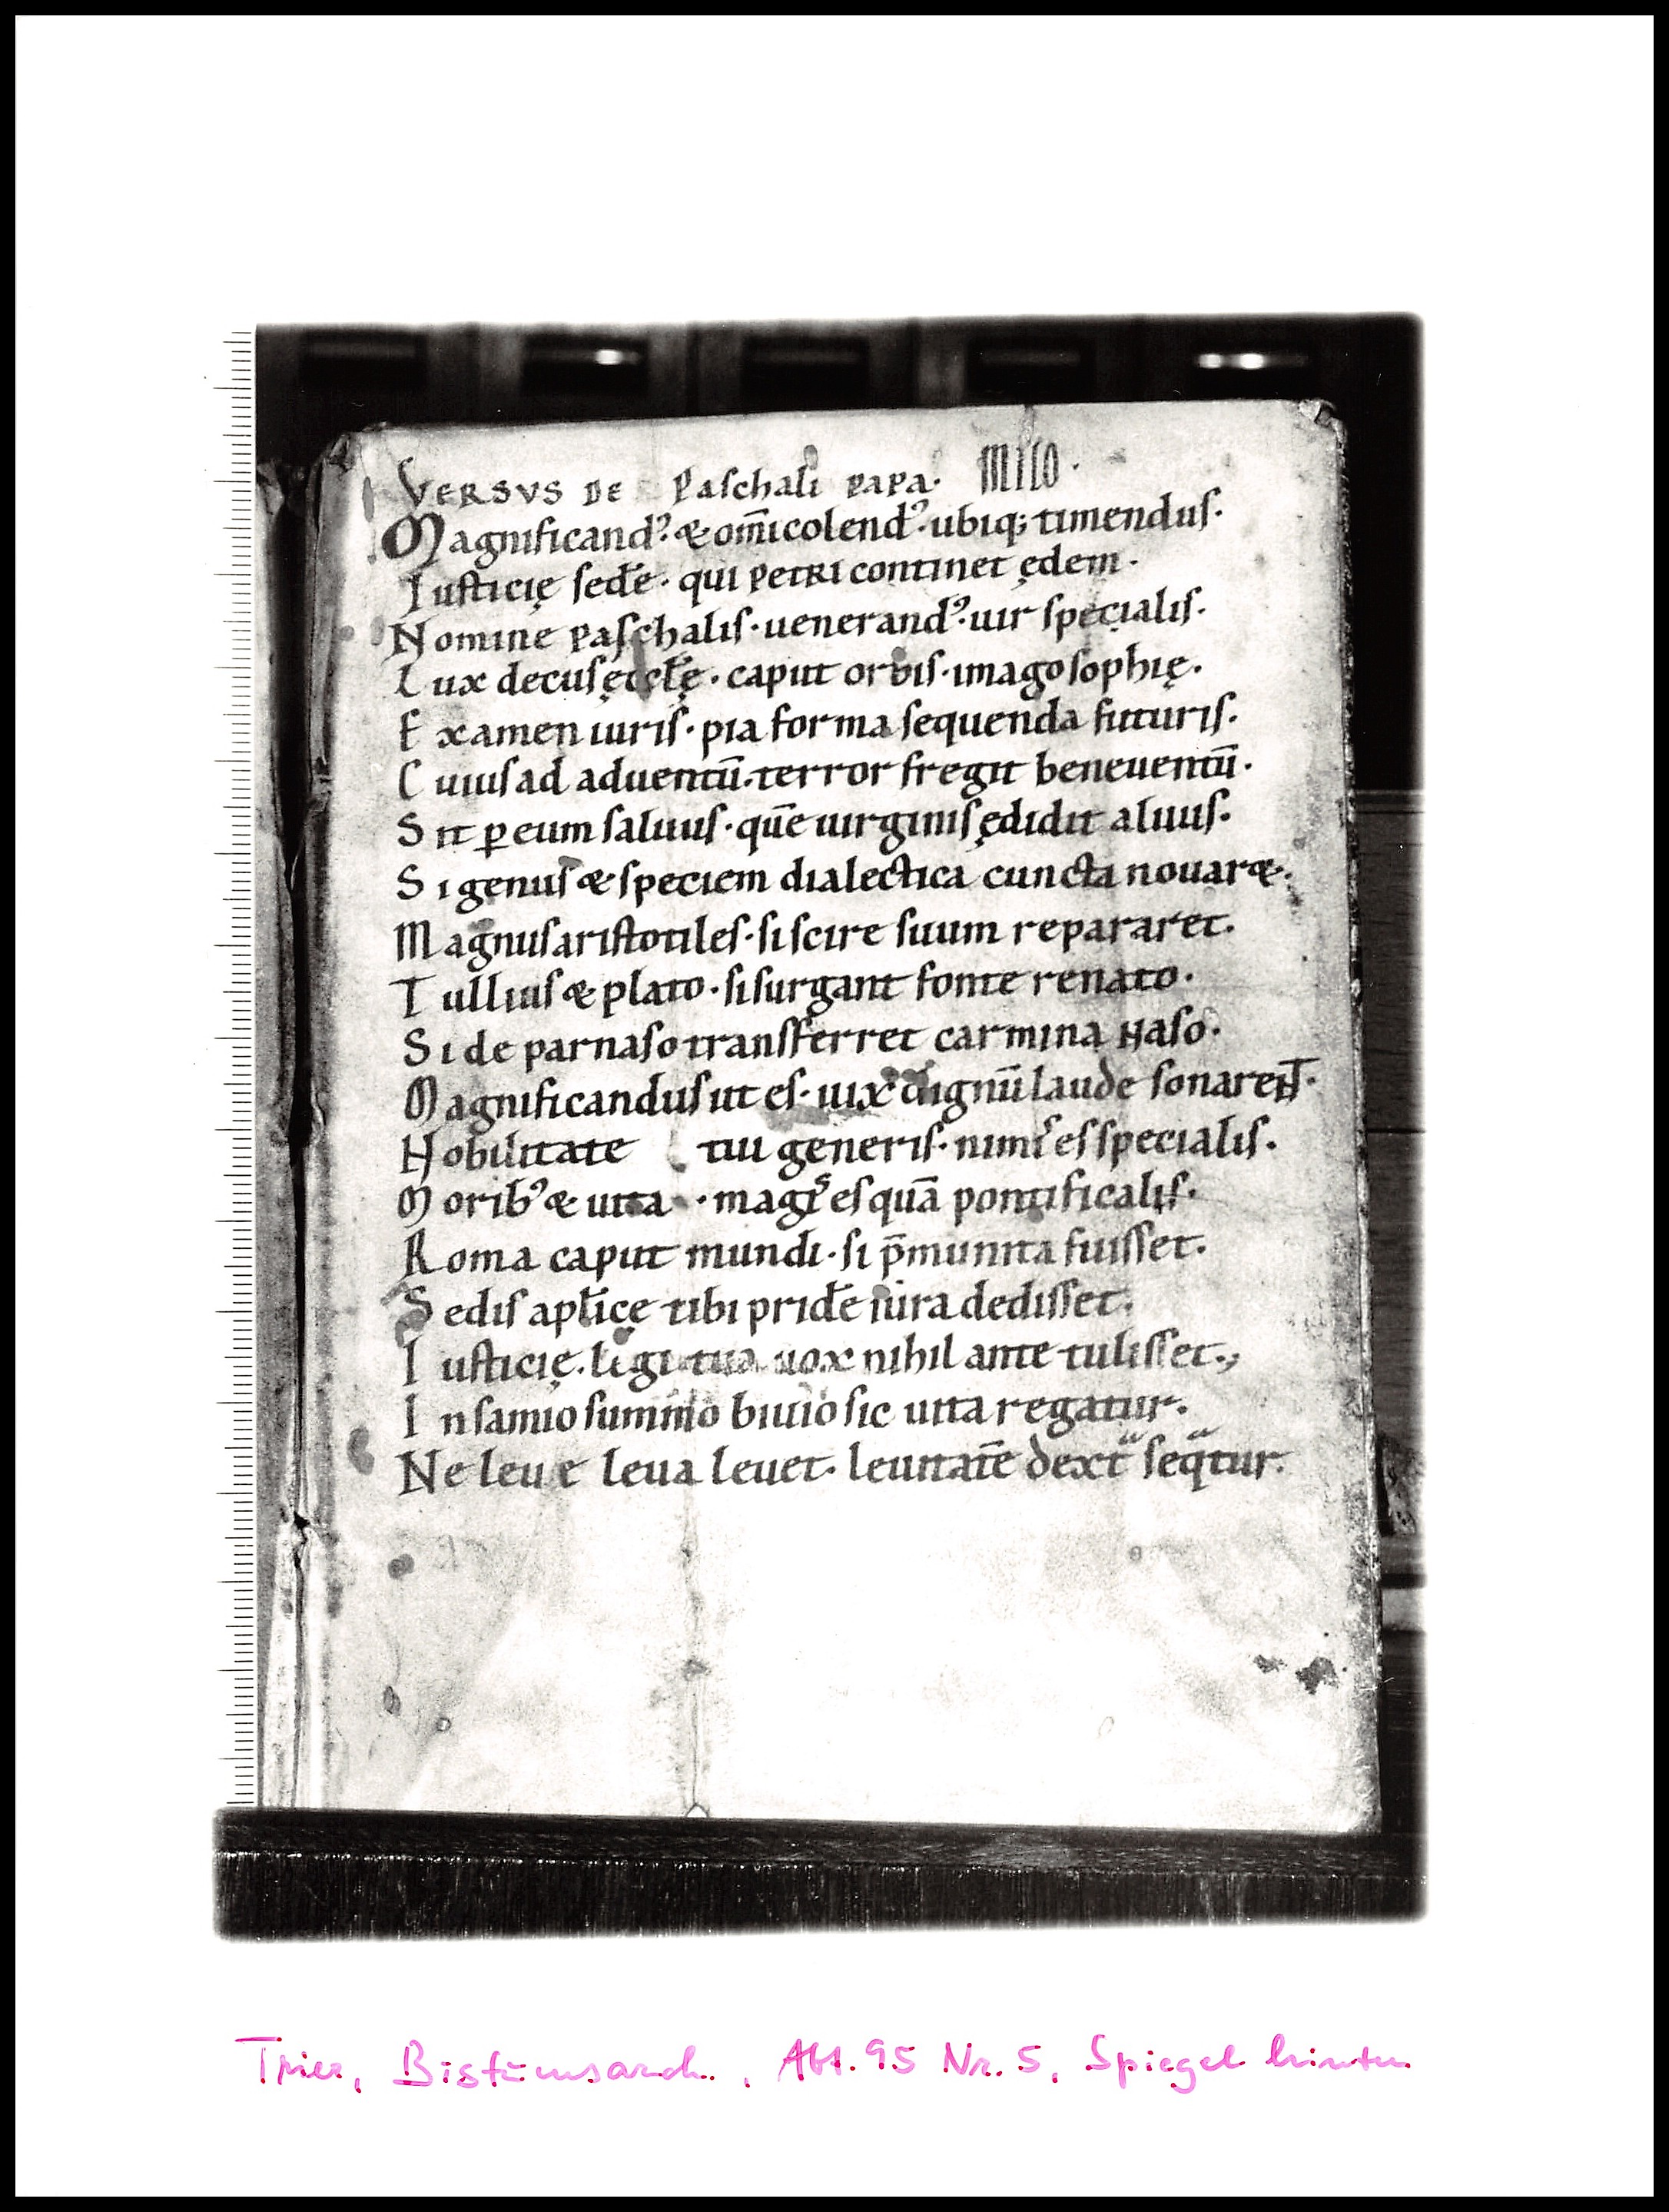 VERSVS DE Paſchali PAPA. MILO.
Magnificandꝰ. & om̅icolendꝰ. ubiq; timenduſ.
Iuſticię ſed̅e. qui PETRI continet ędem.
Nomine Paſchaliſ. uenerandꝰ. uir ſpecialiſ.
Lux decuſ ęccłę. caput orbiſ. imago ſophię.
Examen iuriſ. pia forma ſequenda futuriſ.
Cuiuſ ad aduentū. terror fregit beneuentū.
Sit ꝑ eum ſaluuſ. quē uirginiſ ędidit aluuſ.
Si genuſ & ſpeciem dialectica cuncta nouar&.
Magnuſ ariſtotileſ. ſi ſcire ſuum repararet.
Tulliuſ & plato. ſi ſurgant fonte renato.
Si de parnaſo tranſferret carmina Naſo.
Magnificanduſ ut eſ. uix dignū laude ſonarent.
Nobilitate tui generiſ. nimͥſ eſ ſpecialiſ.
Moribꝰ & uita. magͥſ eſ quā pontificaliſ.
Roma caput mundi. ſi p̄munita fuiſſet.
Sediſ apłicę tibi prid̅e iura dediſſet.
Iuſticię. ligi tua uox nihil ante tuliſſet.,
In ſamio ſummo biuio ſic uita regatur.
Ne leue leua leuet. leuitatē dextᵃ ſeqᵃtur.
Trier, Bistumsarch., Abt. 95 Nr. 5, Spiegel hinten